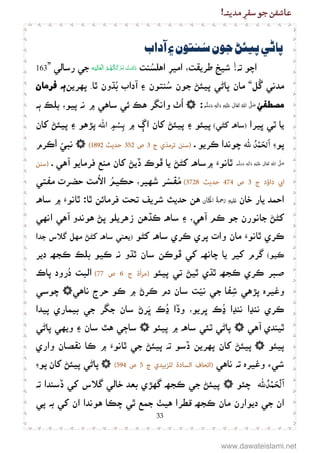 عاشقن جو سفرِ مدینہ!
پاڻي پيئڻ جون سُنتون ۽ آداب
اچو تہ! شيخ طريقت، اميرِ اهلسُنت دَامَتْ بَرَكَاتُهُمُ الْعَالِيَه جي رسالي ”163
مدني گُل“ مان پاڻي پيئڻ جون سُنتون ۽ آداب ٻُڌون ٿا. پهرين ٻہ فرمان
مصطفيٰ صَلَّى اللهُ تَعَالٰى عَلَيْهِ وَاٰلِهٖ وَسَلَّم : ۞ اُٺ وانگر هڪ ئي ساهي ۾ نہ پيو، بلڪ ٻہ
يا ٽي ڀيرا (ساهہ کڻي) پيئو ۽ پيئڻ کان اڳ ۾ بِسْمِ الله پڙهو ۽ پيئڻ کان
پوءِ اَلْحَمْدُ لِلّٰه چوندا ڪريو. (سنن ترمذي ج 3 ص 352 حديث 1892) ۞ نبيِّ اڪرم
صَلَّى اللهُ تَعَالٰى عَلَيْهِ وَاٰلِهٖ وَسَلَّم ٿانوءَ ۾ ساهہ کڻڻ يا ڦوڪ ڏيڻ کان منع فرمايو آهي. (سنن
ابي داؤد ج 3 ص 474 حديث 3728) مُفَسّرِ شَهير، حڪيمُ الاُمت حضرت مفتي
احمد يار خان عَلَيْهِ رَحْمَةُ الْحَنَّان هن حديث شريف تحت فرمائن ٿا: ٿانوَ ۾ ساهہ
کڻڻ جانورن جو ڪم آهي، ۽ ساهہ ڪڏهن زهريلو پڻ هوندو آهي انهي
ڪري ٿانوءَ مان وات پري ڪري ساهہ کڻو (يعني ساهہ کڻڻ مهل گلاس جدا
ڪيو) گرم کير يا چانهہ کي ڦوڪن سان ٿڌو نہ ڪيو بلڪ ڪجهہ دير
صبر ڪري ڪجهہ ٿڌي ٿيڻ تي پيئو (مرآة ج 6 ص 77) البت دُرود پاڪ
وغيره پڙهي شِفا جي نيّت سان دم ڪرڻ ۾ ڪو حرج ناهي ۞ چوسي
ڪري ننڍا ننڍا ڍُڪ پريو، وڏا ڍُڪ ڀرڻ سان جگر جي بيماري پيدا
ٿيندي آهي ۞ پاڻي ٽئي ساهہ ۾ پيئو ۞ ساڄي هٿ سان ۽ ويهي پاڻي
پيئو ۞ پيئڻ کان پهرين ڏسو تہ پيئڻ جي ٿانوءَ ۾ ڪا نقصان واري
شيءِ وغيره تہ ناهي (اتحاف السادة للزبيدي ج 5 ص 594) ۞ پاڻي پيئڻ کان پوءِ
اَلْحَمْدُ لِلّٰه چئو ۞ پيئڻ جي ڪجهہ گهڙي بعد خالي گلاس کي ڏسندا تہ
ان جي ديوارن مان ڪجهہ قطرا هيٺ جمع ٿي چڪا هوندا ان کي بہ پي
33
www.dawateislami.net